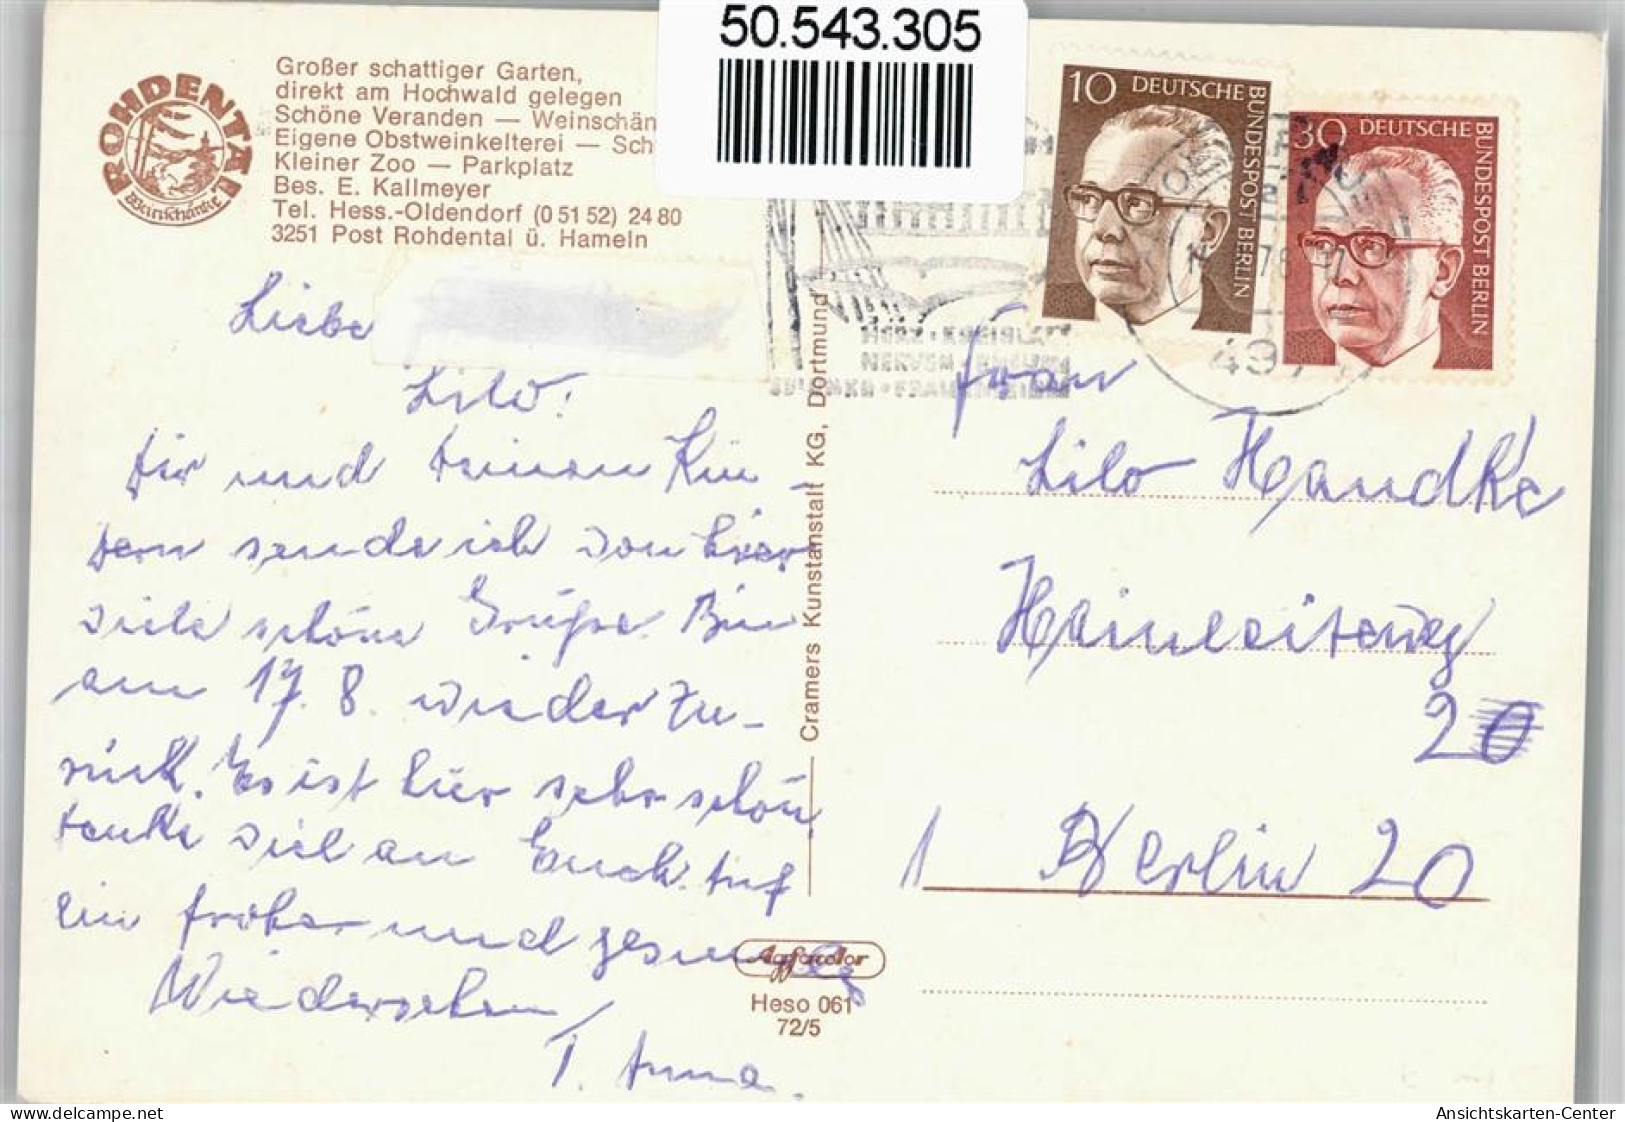 50.543.305
ROHDENTAL
Weinschänke
Großer schattiger Garten,
direkt am Hochwald gelegen
Schöne Veranden — Weinschän
Eigene Obstweinkelterei — Sch
Kleiner Zoo — Parkplatz
Bes. E. Kallmeyer
Tel. Hess.-Oldendorf (0 51 52) 24 80
3251 Post Rohdental ü. Hameln
10 DEUTSCHE BUNDESPOST BERLIN
30 DEUTSCHE BUNDESPOST BERLIN
HERZ · KREISLAUF
NERVEN
Liebe
Lilo!
Dir und deinen Kin-
dern sende ich von hier
viele schöne Grüße. Bin
am 17. 8. wieder zu-
rück. Es ist hier sehr schön
denke viel an Euch. Auf
ein frohes und gesundes
Wiedersehen
T. Anna.
Cramers Kunstanstalt KG, Dortmund
Agfacolor
Heso 061
72/5
Frau
Lilo Handke
Hainleiteweg
20
1 Berlin 20
Ansichtskarten-Center